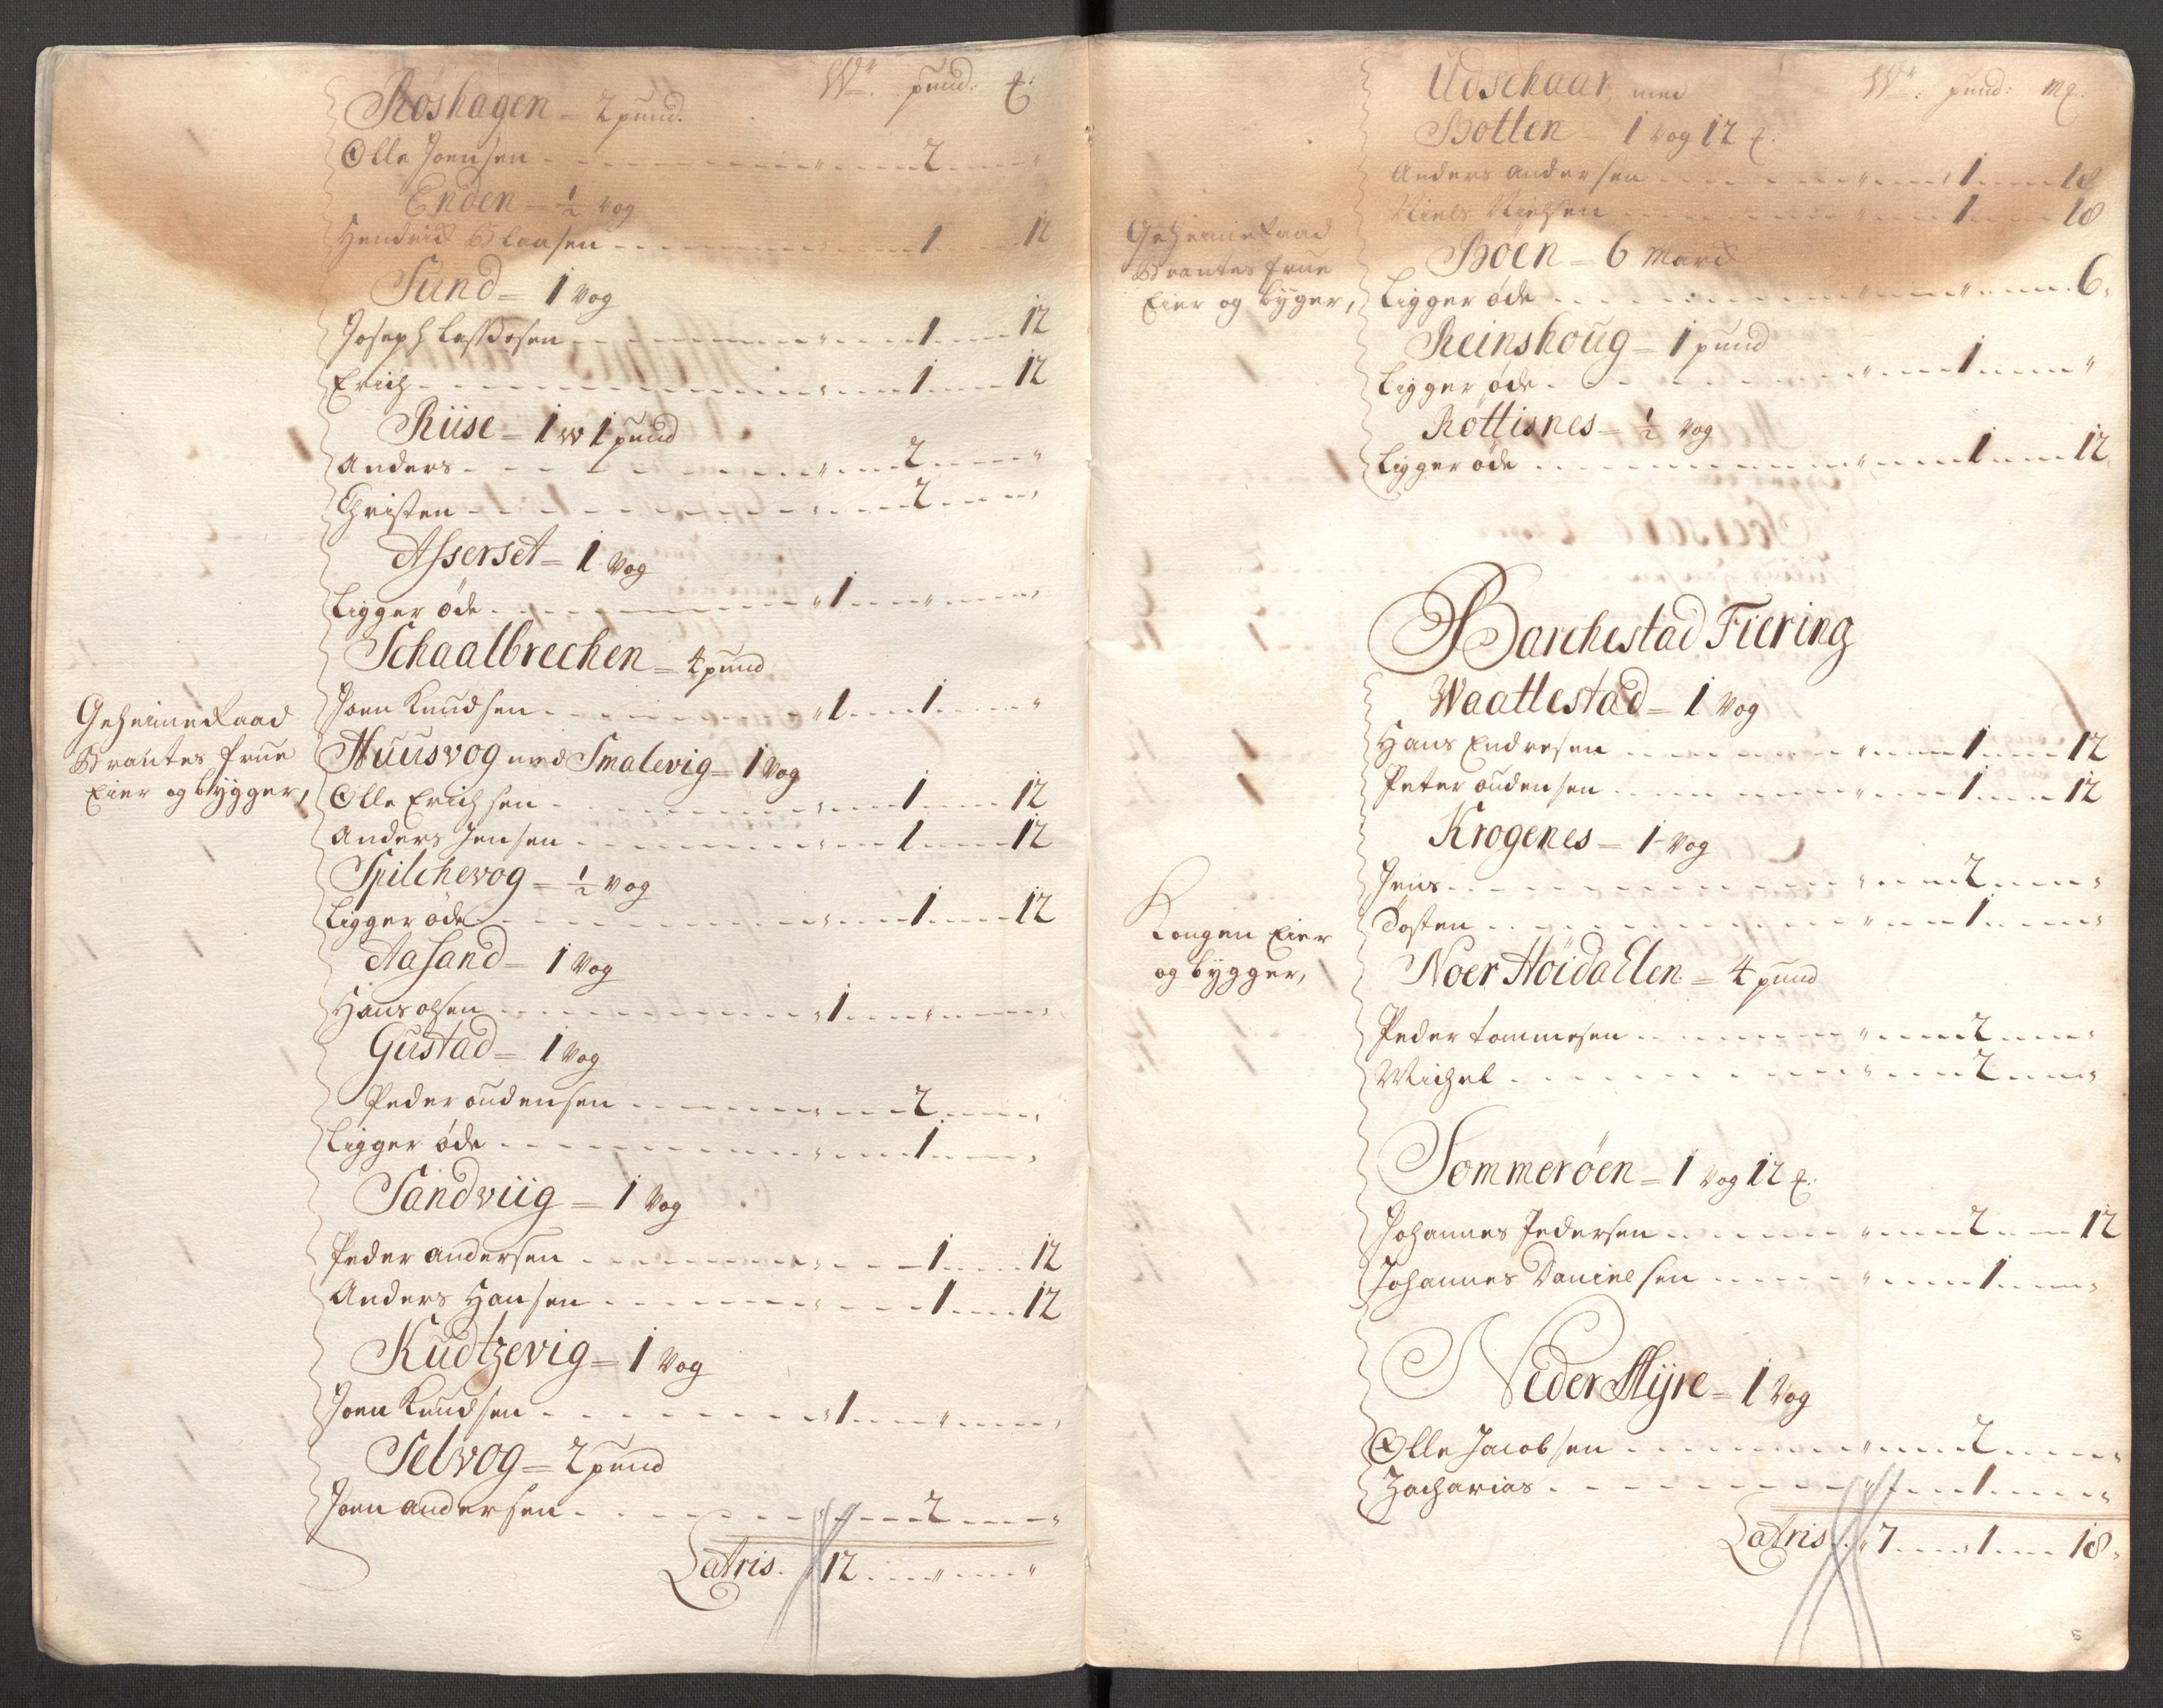 Wr. pund: ℔:
Röshagen = 2 pund.
Olle Joensen - - - " - - 2 - - "
Enden = ½ vog
Hendrich Claasen - - - " - - 1 - - 12
Sund = 1 Vog
Joseph - - - " - - 1 - - 12
Erich - - - " - - 1 - - 12
Riise = 1 w 1 pund
Anders - - - " - - 2 - - "
Christen - - - " - - 2 - - "
Asserset = 1 Vog
Ligger öde - - - " 1 - - " - - "
Schaalbrechen = 4 pund
Joen Knudsen - - - " 1 - - 1 - - "
Geheimeraad
Brantes frue
Eier og bygger,
Huusvog med Smalevig = 1 Vog
Olle Erichsen - - - " - - 1 - - 12
Anders Jensen - - - " - - 1 - - 12
Spilchevog = ½ vog
Ligger öde - - - " - - 1 - - 12
Aasand = 1 Vog
Hans olsen - - - " 1 - - " - - "
Gustad = 1 Vog
Peder oudensen - - - " - - 2 - - "
Ligger öde - - - " - - 1 - - "
Sandviig = 1 Vog
Peder andersen - - - " - - 1 - - 12
Anders Hansen - - - " - - 1 - - 12
Kudtzevig = 1 Vog
Joen Knudsen - - - " 1 - - " - - "
Selvog = 2 pund
Joen andersen - - - " - - 2 - - "
Latris. 12 - - " - - "
Wr: pund: m℔:
Udschaar med
Botten = 1 vog 12 ℔.
Anders Andersen - - - " - - 1 - - 18
Niels Nielsen - - - " - - 1 - - 18
Geheimeraad
Brantes frue
Eier og byger,
Böen = 6 March
Ligger öde - - - " - - " - - 6 "
Reinshoug = 1 pund
Ligger öde - - - " - - 1 - - "
Röttisnes = ½ vog
Ligger öde - - - " - - 1 - - 12
Barchestad Fiering
Waattestad = 1 Vog
Hans Endresen - - - " - - 1 - - 12
Peter oudensen - - - " - - 1 - - 12
Krogenes = 1 Vog
Jens - - - " - - 2 - - "
Tosten - - - " - - 1 - - "
Kongen Eier
og bygger,
Noer Höidallen = 4 pund
Peder tommesen - - - " - - 2 - - "
Michel - - - " - - 2 - - "
Sommeröen = 1 Vog 12 ℔.
Johannes Pedersen - - - " - - 2 - - 12
Johannes Danielsen - - - " - - 1 - - "
Neder Myre = 1 Vog
Olle Jacobsen - - - " - - 2 - - "
Zacharias - - - " - - 1 - - "
Latris. " 7 - - 1 - - 18 "
5